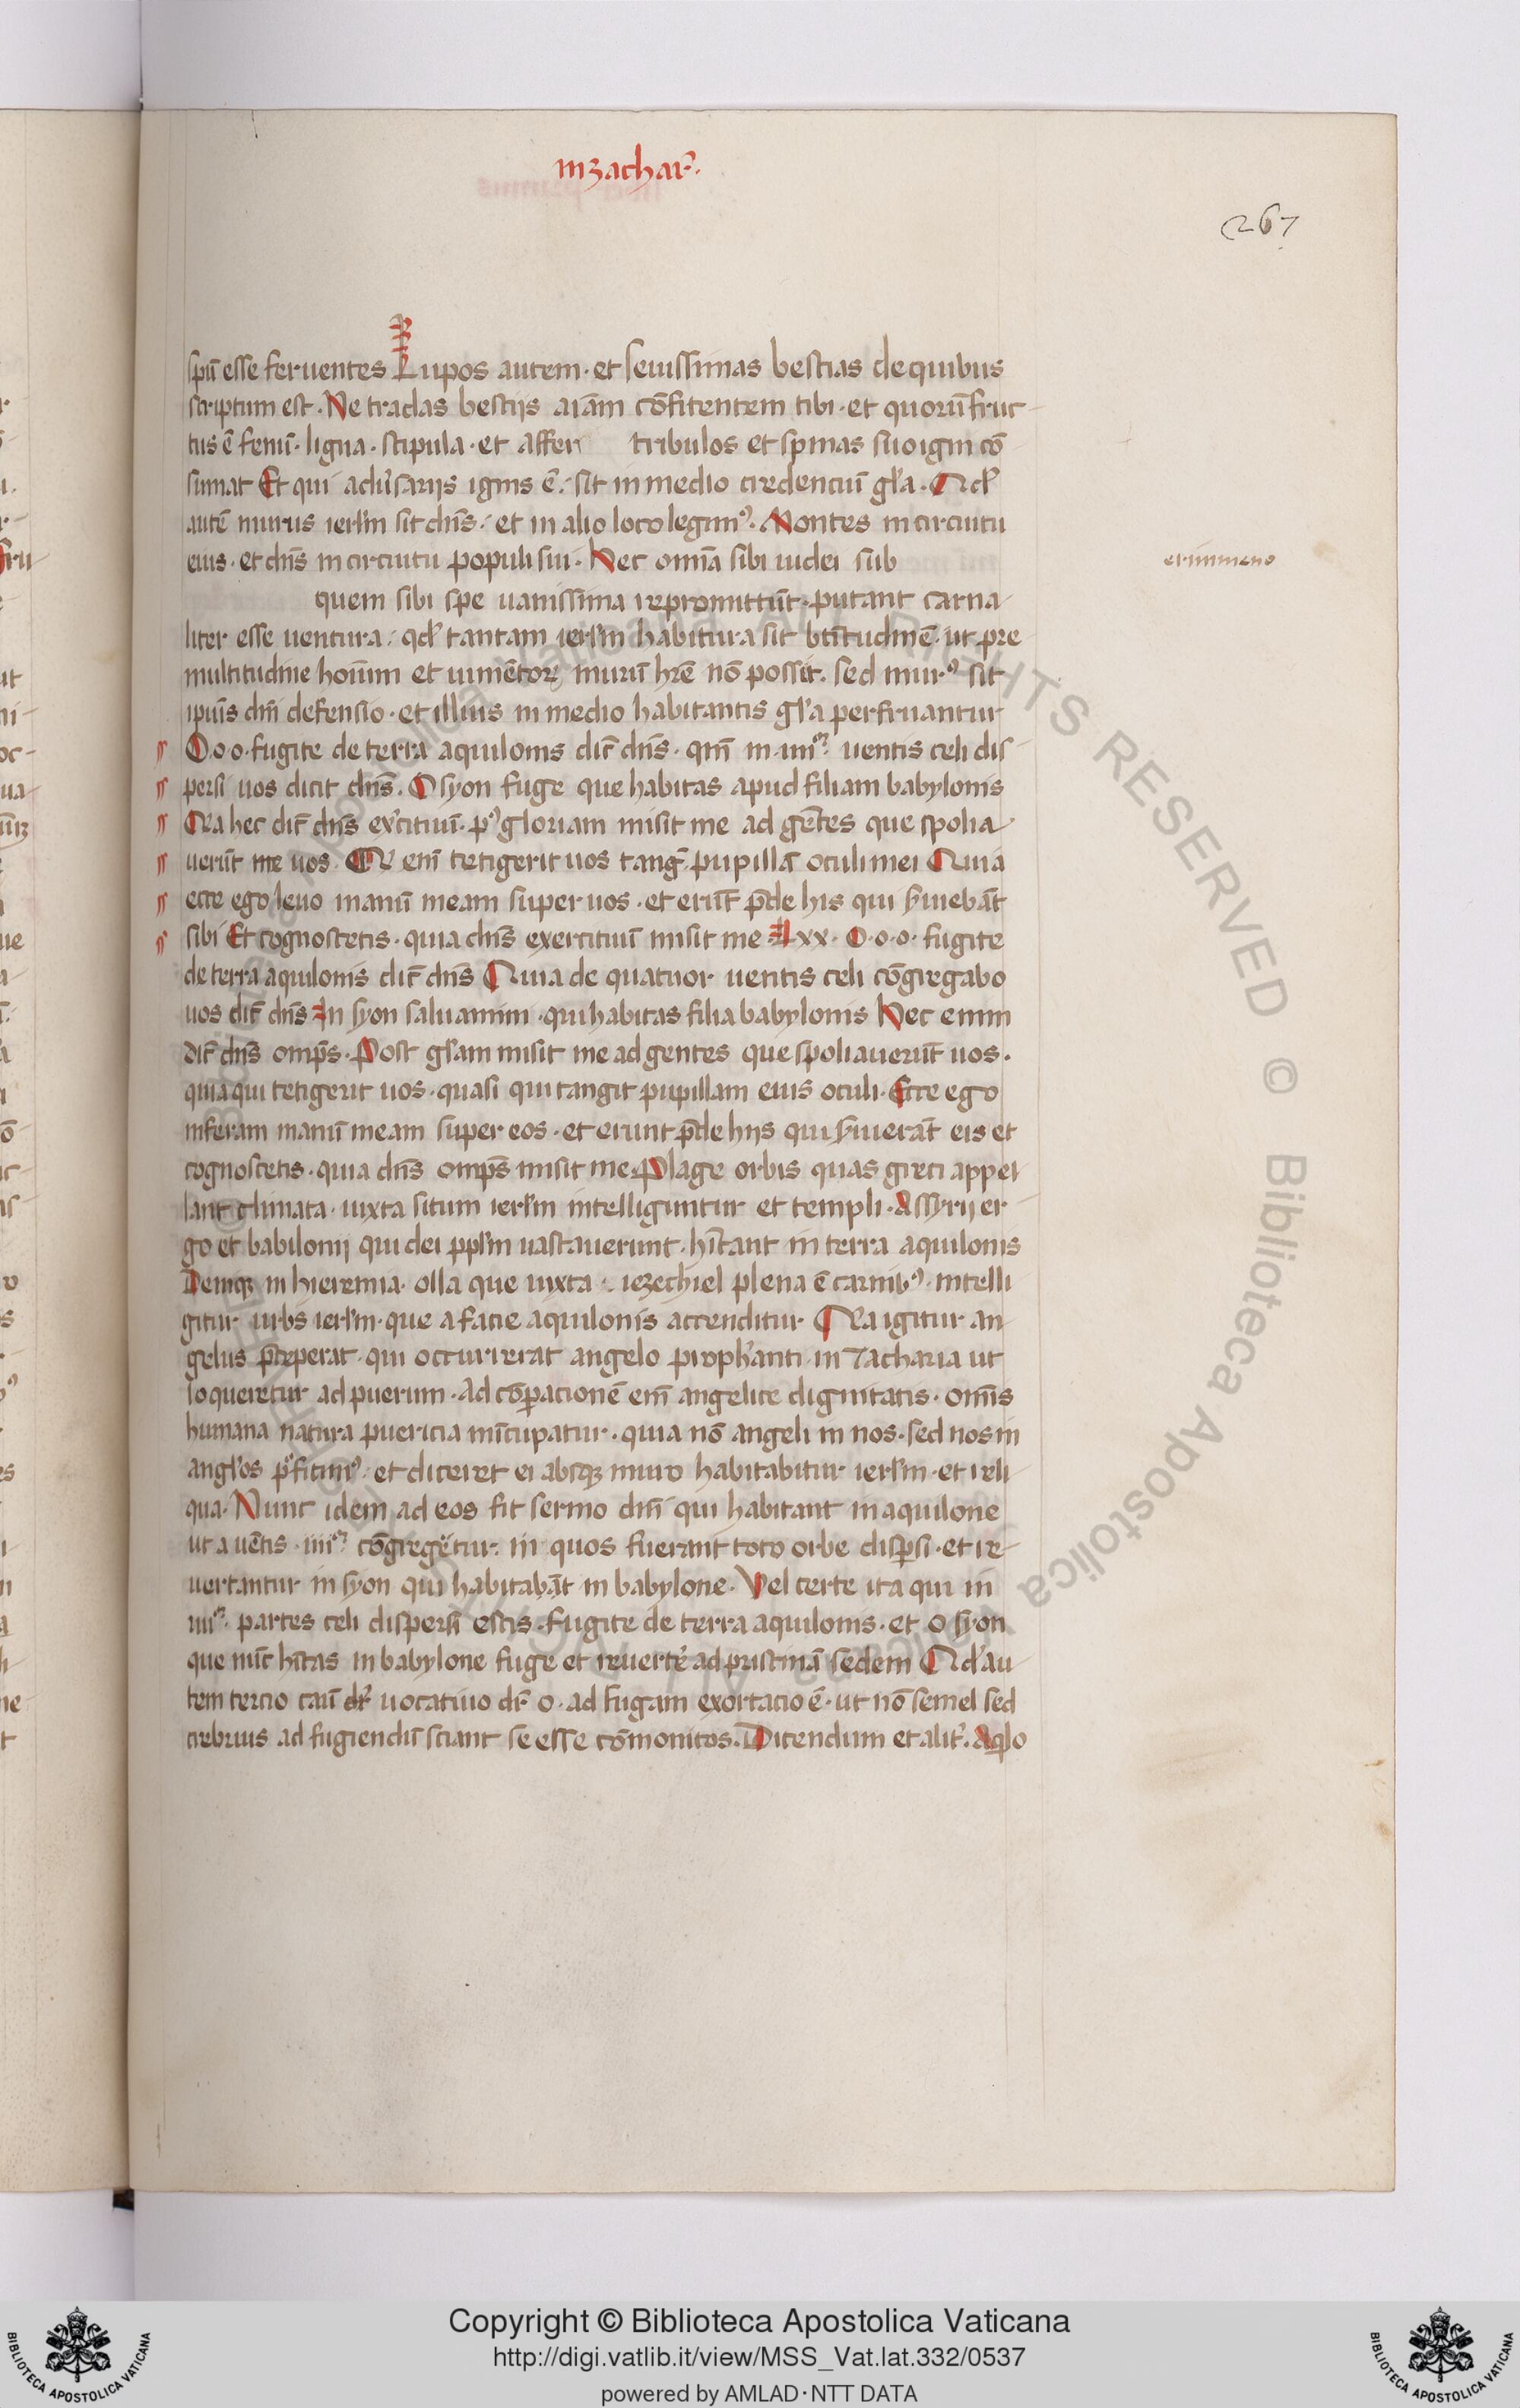 in zachar̃.
267
spũ esse feruentes Lupos autem. et seuissimas bestias de quibus
scriptum est. Ne tradas bestijs aĩam cõfitentem tibi. et quorũ fruc-
tus ẽ fenũ. ligna. stipula. et affer tribulos et spinas suo igni cõ
sumat Et qui adũsarijs ignis ẽ. sit in medio credenciũ gl̃a. Qd̃
autẽ murus ierl̃m sit dñs. et in alio loco legimꝰ. Montes in circuitu
eius. et dñs in circuitu populi sui. Hec omĩa sibi iudei sub
erimmeno
quem sibi spe uanissima repromittũt. putant carna
liter esse uentura. qd̃ tantam ierl̃m habitura sit btĩtudinẽ. ut pre
multitudine hoĩum et iumẽtorꝝ murũ hr̃e nõ possit. sed murꝰ sit
ipĩus dñi defensio. et illius in medio habitantis gl̃a perfruantur
O. o. o. fugite de terra aquilonis dic̃ dñs. qm̃ in iiiiᵒʳ uentis celi dis-
persi uos dicit dñs. O syon fuge que habitas apud filiam babylonis
Q̃a hec dic̃ dñs ex̃citiuũ. pꝰ gloriam misit me ad gẽtes que spolia
uerũt me uos. Q̃ enĩ tetigerit uos tang̃ pupillã oculi mei Quia
ecce ego leuo manũ meam super uos. et erũt p̃de his qui s̃uiebãt
sibi Et cognoscetis. quia dñs exercituũ misit me Lxx. O. o. o. fugite
de terra aquilonis dic̃ dñs Quia de quatuor uentis celi cõgregabo
uos dic̃ dñs In syon saluamini. qui habitas filia babylonis Hec enim
dic̃ dñs omp̃s. Post gl̃am misit me ad gentes que spoliauerũt uos.
quia qui tetigerit uos. quasi qui tangit pupillam eius oculi. Ecce ego
inferam manũ meam super eos. et erunt p̃de hijs qui s̃uierãt eis et
cognoscetis. quia dñs omp̃s misit me. Plage orbis quas greci appel
lant climata. iuxta situm ierl̃m intelliguntur et templi. Assyrij er-
go et babilonij qui dei ppl̃m uastauerunt. hĩtant in terra aquilonis
Deniqꝫ in hieremia. olla que iuxta iezechiel plena ẽ carnibꝰ. intelli
gitur urbs ierl̃m. que a facie aquilonis accenditur Q̃a igitur an
gelus p̃ceperat. qui occurrerat angelo proph̃anti in Zacharia ut
loqueretur ad puerum. Ad cõparacionẽ enĩ angelice dignitatis. omĩs
humana natura puericia nũcupatur. quia nõ angeli in nos. sed nos in
angl̃os p̃ficimꝰ. et diceret ei absqꝫ muro habitabitur ierl̃m. et reli
qua. Nunc idem ad eos fit sermo dñi qui habitant in aquilone
ut a uẽtis iiiiᵒʳ cõgregẽtur. in quos fuerant toto orbe disp̃si. et re-
uertantur in syon qui habitabãt in babylone. Vel certe ita qui in
iiiiᵒʳ partes celi dispersi estis. fugite de terra aquilonis. et O syon
que nũc hĩtas in babylone fuge et reuerte᷑ ad pristinã sedem Qd̃ au
tem tercio caũ dr̃ uocatiuo dr̃ o. ad fugam exortacio ẽ. ut nõ semel sed
crebrius ad fugiendũ sciant se esse cõmonitos. Dicendum et alit̃. Aq̃lo
Copyright © Biblioteca Apostolica Vaticana
http://digi.vatlib.it/view/MSS_Vat.lat.332/0537
powered by AMLAD·NTT DATA